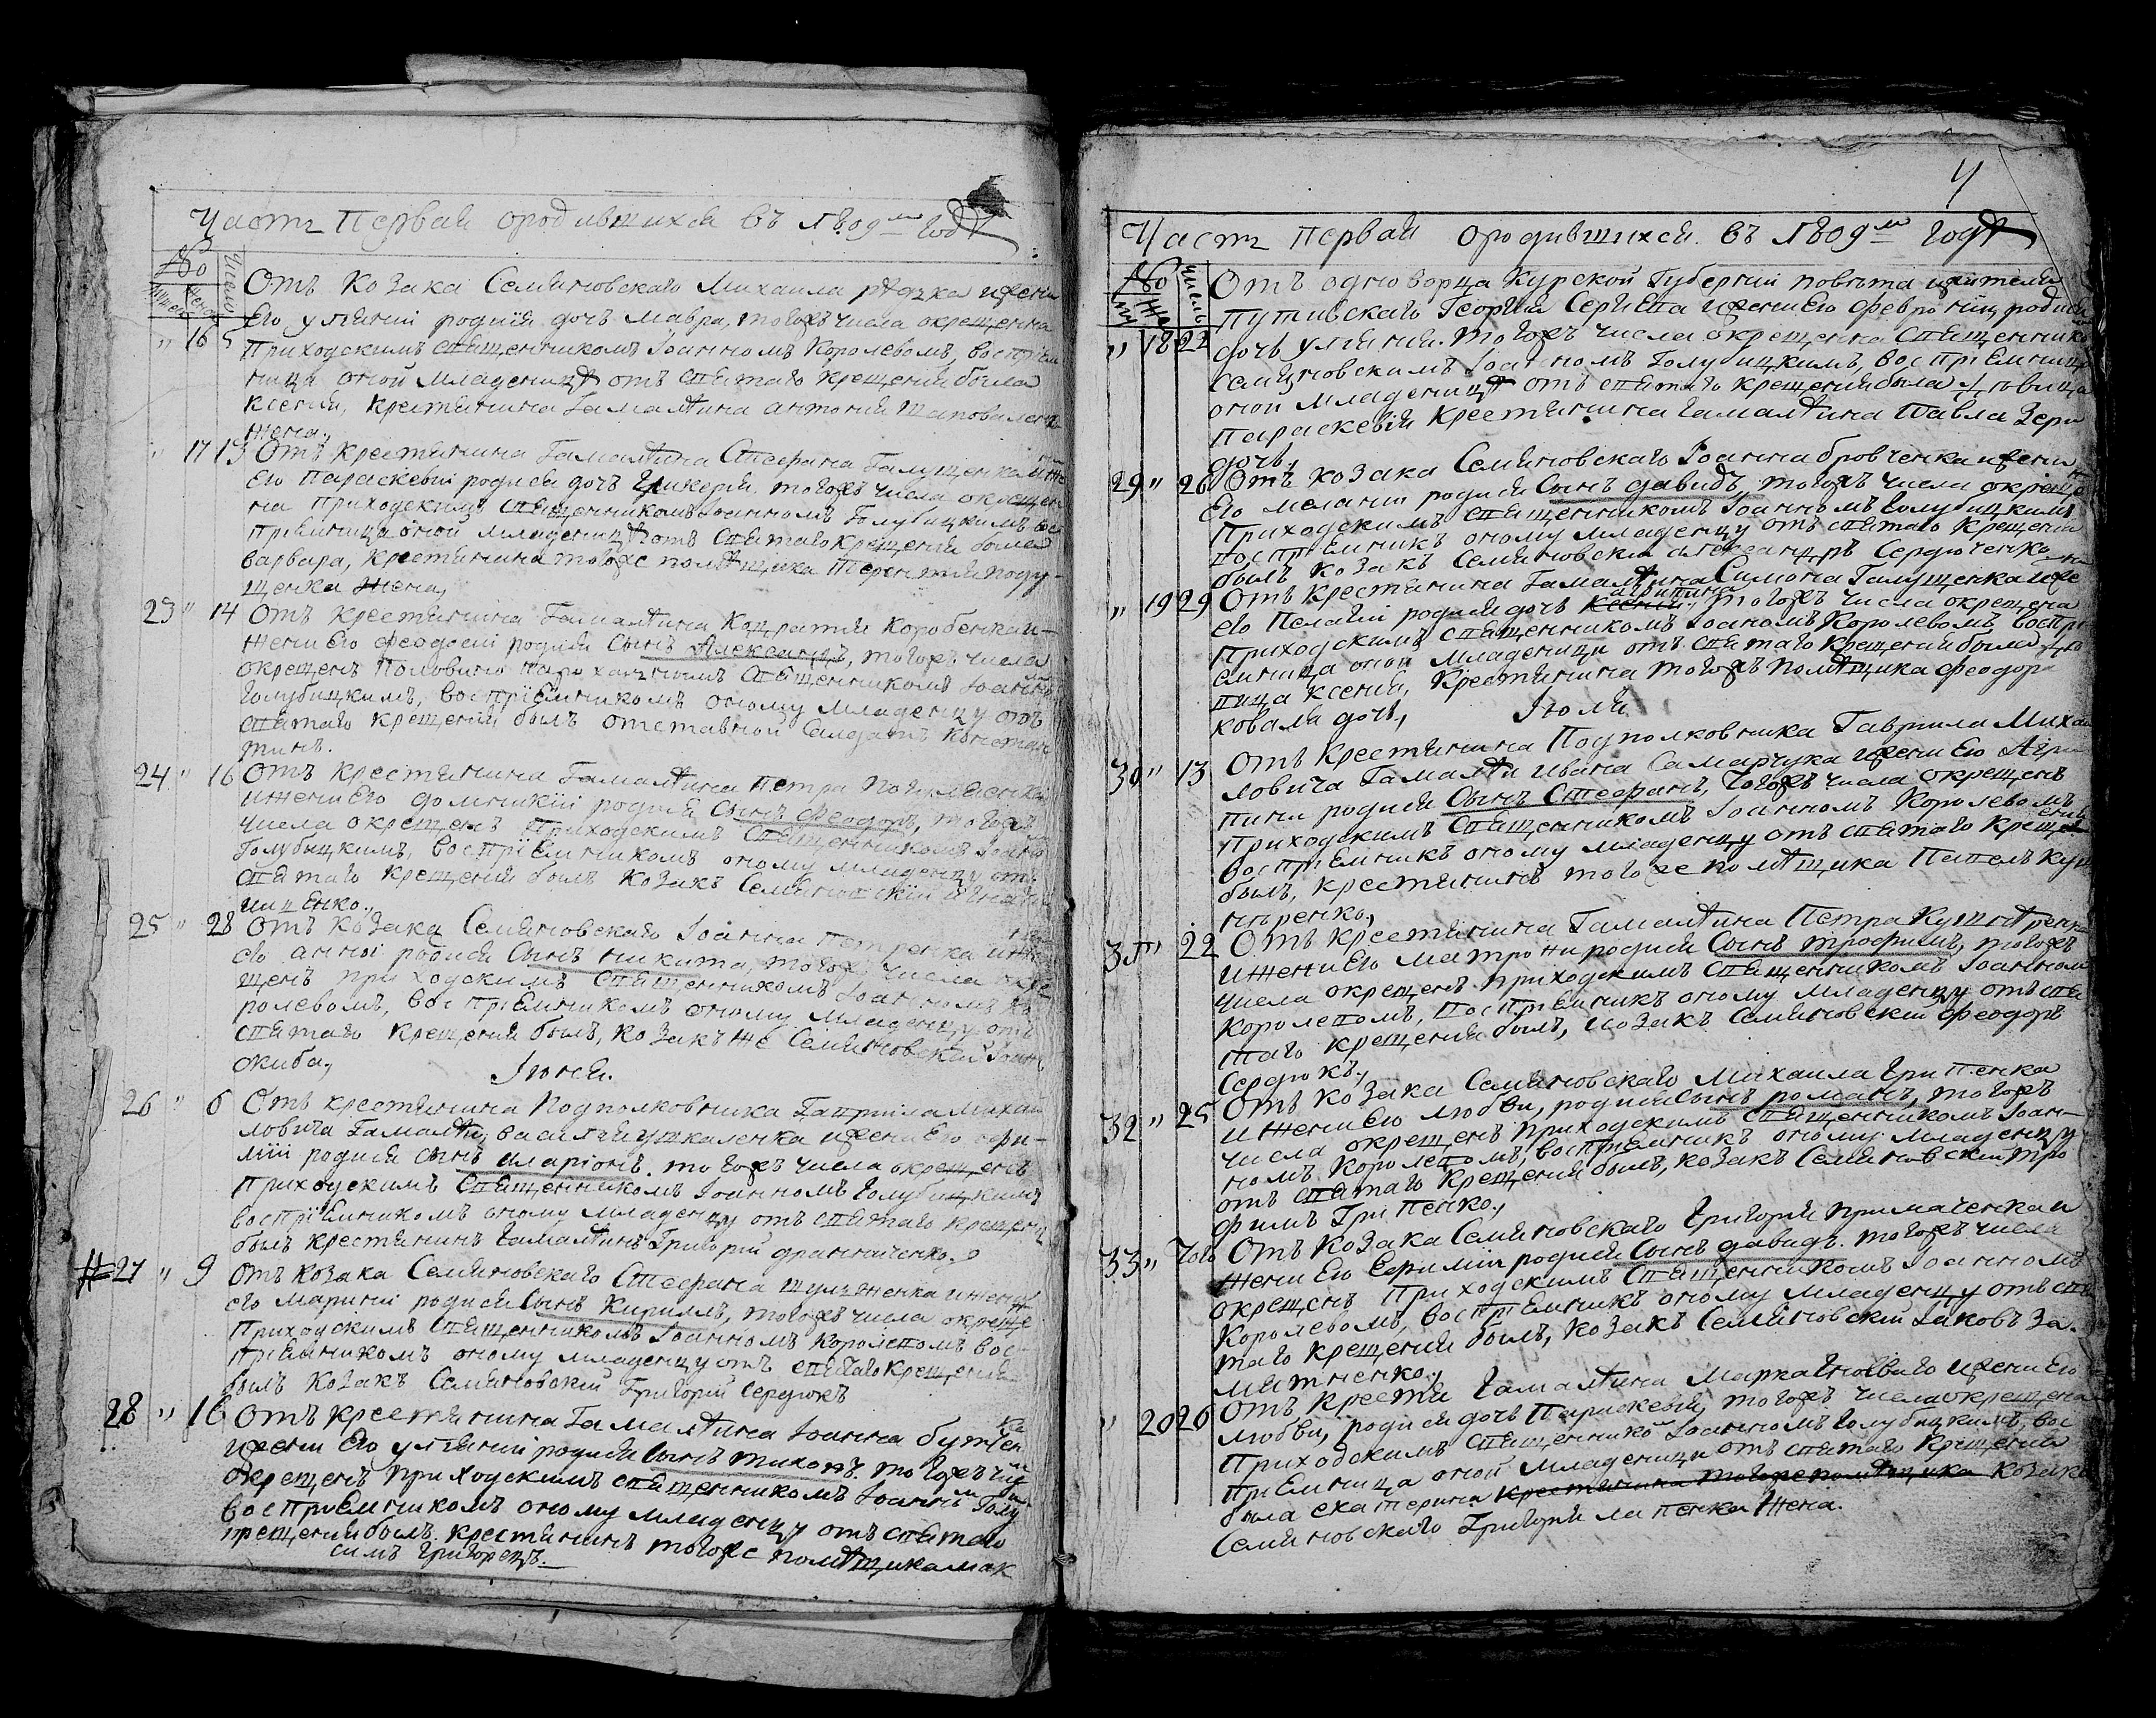 Часть Первая ородившихся въ 1809м году
№ Число
мужеск женск
Отъ Козака Семяновскаго Михаила рѣдька ижены
Его улянии родися дочь Мавра, тогожъ числа окрещенна
" 16 5 Приходскимъ священникомъ Іоанномъ Королевомъ, воспріем
ница оной младеницѣ отъ святаго крещения была
Ксения, крестянина Гамалѣина антония Шаповаленка
жена,
" 17 13 Отъ Крестянина Гамалѣина Стефана Галущенка иже
Его Параскевіи родися дочь Гликерия. тогожъ числа окрещен
на приходскимъ священникомъ Іоанномъ Голубицкимъ вос
приемница оной младеницѣ отъ святаго крещения была
варвара, крестянина тогоже помѣщика Терентия поду
щенка жена,
23 " 14 Отъ крестянина Гамалѣина Кондратия Коробенка и
жены Его феодосіи родися Сынъ Александръ, тогожъ числа
окрещенъ священникомъ Іоанно
Голубицкимъ, воспріемникомъ оному младенцу отъ
святаго крещения былъ отставной Салдатъ Констан
тинъ.
24 " 16 Отъ крестянина Гамалѣина Петра
ижены Его домникіи родися Сынъ Феодоръ, тогожъ
числа окрещенъ Приходскимъ Священникомъ Іоанно
Голубицкимъ, воспріемникомъ оному младенцу отъ
святаго крещения былъ Козакъ Семяновскій
щенко.,
25 " 28 Отъ Козака Семяновскаго Іоанна Петренка иже
его анны родися Сынъ никита, тогожъ числа окре
щенъ приходскимъ священникомъ Іоанномъ Ко
ролевомъ, воспріемникомъ оному младенцу отъ
святаго крещения былъ, козакъ же Семяновский Іоан
скиба,
Іюня.
26 " 6 Отъ крестянина Подполковника Гавриила Михай
ловича Гамалѣи, василия ушкаленка ижены Его ефи
міи родися Сынъ иларіонъ. тогожъ числа окрещенъ
Приходскимъ Священникомъ Іоанномъ Голубицкимъ
воспріемникомъ оному младенцу отъ святаго крещения
былъ крестянинъ Гамалѣинъ Григорій
27 " 9 Отъ козака Семяновскаго Стефана шулженка ижены
его марины родися Сынъ Кириллъ, тогожъ числа окреще
Приходскимъ священникомъ Іоанномъ Королевомъ вос
приемникомъ оному младенцу отъ святаго крещения
былъ Козакъ Семяновский Григорий Сердюкъ
28 " 16 Отъ крестянина Гамалѣина Іоанна
ижены Его улянии родися Сынъ тихонъ. тогожъ чи
окрещенъ приходскимъ священникомъ Іоанномъ Голу
воспріемникомъ оному младенцу отъ святаго
крещения былъ. крестянинъ тогоже помѣщика мак
симъ Григорецъ.
4
Часть Первая ородившихся. въ 1809м году
№ Число
му же
Отъ одноворца Курской Губерніи повѣта жителя
Путивскаго Георгия Сергиева ижены Его февронии родися
" 18 22 дочь уляния. тогожъ числа окрещенна Священнико
Семяновскимъ Іоанномъ Голубицкимъ, воспріемница
оной младеницѣ отъ святаго крещения была дѣвица
Параскевия крестянина Гамалѣина Павла Зери
дочь,
29 " 26 Отъ козака Семяновскаго Іоанна бровченка ижены
Его мелании родися Сынъ давидъ тогожъ числа окреще
Приходскимъ священникомъ Іоанномъ Голубицкимъ
воспріемникъ оному младенцу отъ святаго крещения
былъ козакъ Семяновский александръ Сердюченко
" 19 29 Отъ крестянина Гамалѣина Симона Галущенка иже
агрипина
его Пелагии родися дочь ксения. тогожъ числа окрещена
приходскимъ священникомъ Іоанномъ Королевомъ воспри
емница оной младеници отъ святаго крещения была дѣ
вица ксения, крестянина тогожъ помѣщика феодора
коваля дочь,
Іюля
30 " 13 Отъ крестянина Подполковника Гавриила Михай
ловича Гамалѣи ивана Самарчука ижены Его Агри
пины родися Сынъ Стефанъ, тогожъ числа окрещенъ
приходскимъ Священникомъ Іоанномъ Королевомъ
воспріемникъ оному младенцу отъ святаго крещения
былъ, крестянинъ тогоже помѣщика Павелъ Куш
нѣренко,
31 " 22 Отъ крестянина Гамалѣина Петра Кушнѣренка
ижены Его матроны родися Сынъ трофимъ, тогожъ
числа окрещенъ приходскимъ священникомъ Іоанномъ
Королевомъ, воспріемникъ оному младенцу отъ свя
таго крещения былъ, козакъ Семяновский феодоръ
Сердюкъ,
32 " 25 Отъ козака Семяновскаго Михаила Грипенка
ижены Его любви, родися Сынъ романъ, тогожъ
числа окрещенъ приходскимъ священникомъ Іоан
номъ Королевомъ, воспріемникъ оному младенцу
отъ святаго крещения былъ, козакъ Семяновский тро
фимъ Грипенко,
33 " Того Отъ козака Семяновскаго Григория примаченка и
жены Его Ефиміи родися Сынъ давидъ. тогожъ числа
окрещенъ Приходскимъ Священникомъ Іоанномъ
Королевомъ, воспріемникъ оному младенцу отъ свя
таго крещения былъ, козакъ Семяновский Іаковъ За
мятненко,
" 20 26 Отъ Крестя Гамалѣина Марка ижены Его
любви, родися дочь Параскевия, тогожъ числа окрещена
приходскимъ священнико Іоанномъ Голубицкимъ, вос
приемница оной младеници отъ святаго крещения
была екатерина крестянина тогоже помѣщика козака
Семяновскаго Григория лапенка жена.